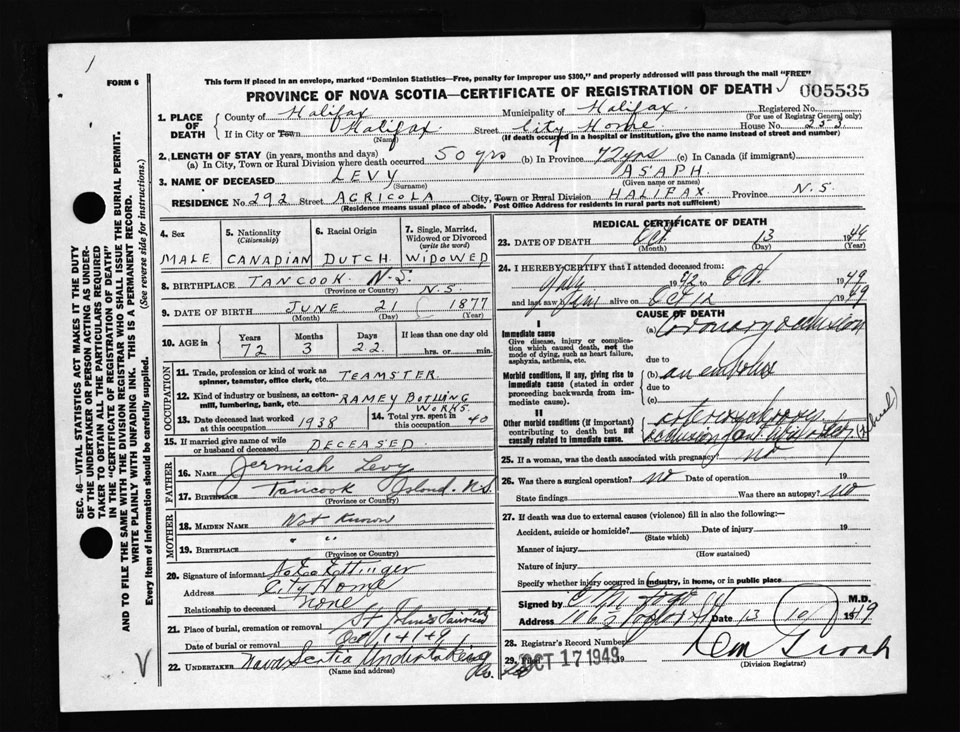 This form if placed in an envelope, marked "Dominion Statistics—Free, penalty for improper use $300," and properly addressed will pass through the mail "FREE"
FORM 6
PROVINCE OF NOVA SCOTIA—CERTIFICATE OF REGISTRATION OF DEATH
005535
1. PLACE OF DEATH
County of Halifax
Municipality of Halifax.
Registered No.
(For use of Registrar General only)
If in City or Town Halifax Street City Home House No. 233
(Name)
(If death occurred in a hospital or institution, give the name instead of street and number)
2. LENGTH OF STAY (in years, months and days)
(a) In City, Town or Rural Division where death occurred 50 yrs (b) In Province 72 yrs (c) In Canada (if immigrant)
3. NAME OF DECEASED LEVY ASAPH.
(Surname) (Given name or names)
RESIDENCE No. 292 Street AGRICOLA City, Town or Rural Division HALIFAX. Province N.S.
(Residence means usual place of abode. Post Office Address for residents in rural parts not sufficient)
4. Sex
MALE
5. Nationality (Citizenship)
CANADIAN
6. Racial Origin
DUTCH.
7. Single, Married, Widowed or Divorced (write the word)
WIDOWED
8. BIRTHPLACE TANCOOK N.S.
(Province or Country) N.S.
9. DATE OF BIRTH JUNE 21 1877
(Month) (Day) (Year)
10. AGE Years Months Days If less than one day old
72 3 22 hrs. or min.
OCCUPATION
11. Trade, profession or kind of work as spinner, teamster, office clerk, etc. TEAMSTER.
12. Kind of industry or business, as cotton-mill, lumbering, bank, etc. RAMEY BOTTLING WORKS.
13. Date deceased last worked at this occupation 1938
14. Total yrs. spent in this occupation 40
15. If married give name of wife or husband of deceased DECEASED.
FATHER
16. Name Jermiah Levy
17. Birthplace Tancook Island. N.S.
(Province or Country)
MOTHER
18. MAIDEN NAME Not Known
19. BIRTHPLACE " "
(Province or Country)
20. Signature of informant Ettinger
Address City Home
Relationship to deceased None
21. Place of burial, cremation or removal St John's Fairview
Date of burial or removal Oct 14/49
22. UNDERTAKER Nova Scotia Undertaking Co. Ltd
(Name and address)
MEDICAL CERTIFICATE OF DEATH
23. DATE OF DEATH Oct. 13 1949
(Month) (Day) (Year)
24. I HEREBY CERTIFY that I attended deceased from:
July 1942 to Oct. 1949
and last saw him alive on Oct 12 1949
CAUSE OF DEATH
I
Immediate cause
Give disease, injury or complication which caused death, not the mode of dying, such as heart failure, asphyxia, asthenia, etc.
(a) Coronary occlusion
due to
Morbid conditions, if any, giving rise to immediate cause (stated in order proceeding backwards from immediate cause).
(b) an embolus
due to
(c)
II
Other morbid conditions (if important) contributing to death but not causally related to immediate cause.
arteriosclerosis
occlusion
25. If a woman, was the death associated with pregnancy? no
26. Was there a surgical operation? no Date of operation 19
State findings Was there an autopsy? no
27. If death was due to external causes (violence) fill in also the following:—
Accident, suicide or homicide? Date of injury 19
(State which)
Manner of injury
(How sustained)
Nature of injury
Specify whether injury occurred in industry, in home, or in public place
Signed by M.D.
Address Date 13 10 1949
28. Registrar's Record Number
29. Filed OCT 17 1949 19
(Division Registrar)
SEC. 46—VITAL STATISTICS ACT MAKES IT THE DUTY
OF THE UNDERTAKER OR PERSON ACTING AS UNDER-
TAKER TO OBTAIN ALL THE PARTICULARS REQUIRED
IN THE "CERTIFICATE OF REGISTRATION OF DEATH"
AND TO FILE THE SAME WITH THE DIVISION REGISTRAR WHO SHALL ISSUE THE BURIAL PERMIT.
WRITE PLAINLY WITH UNFADING INK. THIS IS A PERMANENT RECORD.
Every item of information should be carefully supplied. (See reverse side for instructions.)